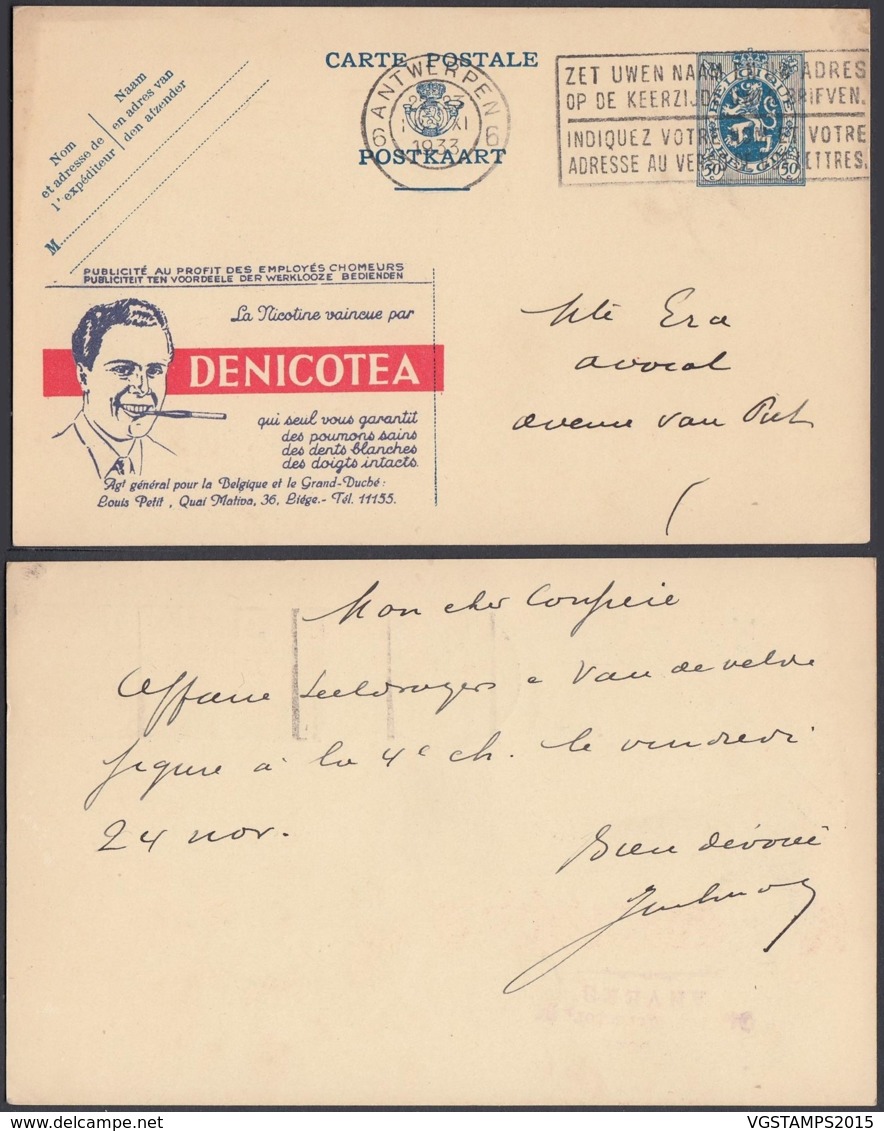 CARTE POSTALE
POSTKAART
Nom
et adresse de
l'expéditeur
Naam
en adres van
den afzender
M
ANTWERPEN
6 6
23
XI
1933
ZET UWEN NAAM ADRES
OP DE KEERZIJDE BRIEVEN.
INDIQUEZ VOTRE VOTRE
ADRESSE AU LETTRES.
BELGIQUE
BELGIË
50 c 50 c
PUBLICITÉ AU PROFIT DES EMPLOYÉS CHOMEURS
PUBLICITEIT TEN VOORDEELE DER WERKLOOZE BEDIENDEN
La Nicotine vaincue par
DENICOTEA
qui seul vous garantit
des poumons sains
des dents blanches
des doigts intacts.
Agt général pour la Belgique et le Grand-Duché :
Louis Petit, Quai Mativa, 36, Liége.- Tél. 11155.
Era
avocat
avenue van
Mon cher Confrère
Affaire Seeldrayers Van de velde
figure à la 4e ch. le vendredi
24 nov.
Bien dévoué
VGSTAMPS2015